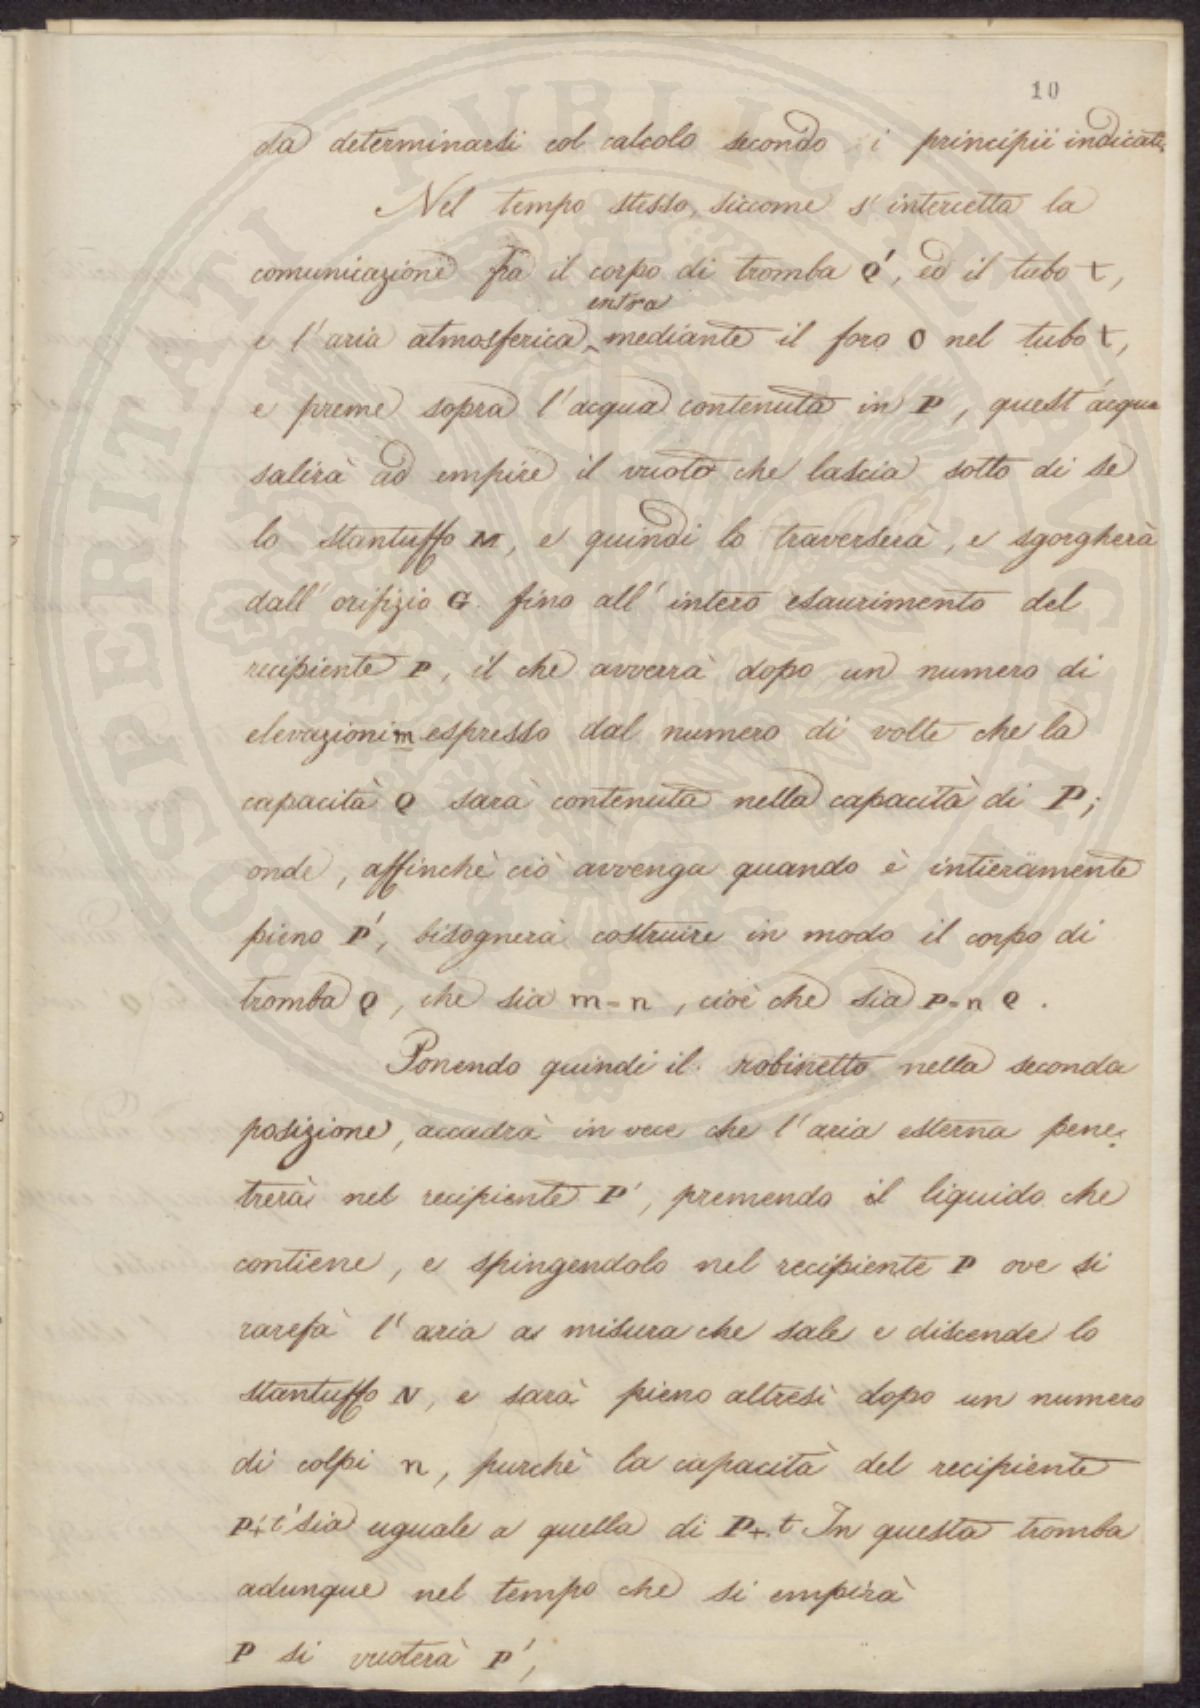 10
da determinarsi col calcolo secondo i principii indicati.
Nel tempo stesso, siccome s'intercetta la
comunicazione fra il corpo di tromba Q', ed il tubo t,
entra
e l'aria atmosferica ‸ mediante il foro O nel tubo t,
e preme sopra l'acqua contenuta in P, quest'acqua
salirà ad empire il vuoto che lascia sotto di se
lo stantuffo M, e quindi lo traverserà, e sgorgherà
dall'orifizio G. fino all'intero esaurimento del
recipiente P, il che avverrà dopo un numero di
elevazioni m espresso dal numero di volte che la
capacità Q sarà contenuta nella capacità di P;
onde, affinchè ciò avvenga quando è intieramente
pieno P', bisognerà costruire in modo il corpo di
tromba Q, che sia m=n, cioè che sia P=nQ.
Ponendo quindi il robinetto nella seconda
posizione, accadrà in vece che l'aria esterna pene-
trerà nel recipiente P', premendo il liquido che
contiene, e spingendolo nel recipiente P ove si
rarefà l'aria a misura che sale e discende lo
stantuffo N, e sarà pieno altresì dopo un numero
di colpi n, purchè la capacità del recipiente
P'+t' sia uguale a quella di P+t. In questa tromba
adunque nel tempo che si empirà
P si vuoterà P',
PROSPERITATI PVBLICAE AVGENDAE